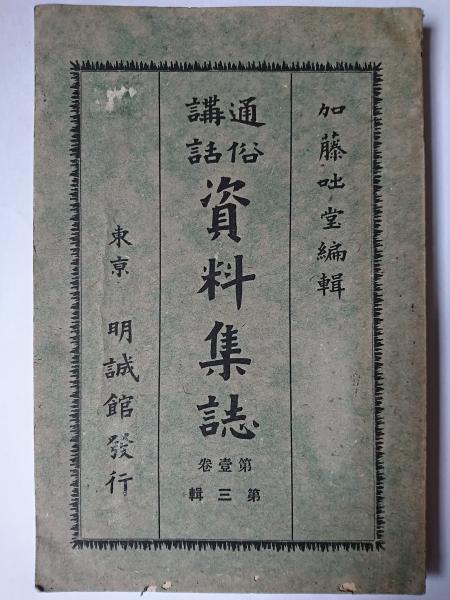 加藤咄堂編輯
通俗
講話
資料集誌
第壹卷
第三輯
東京 明誠館發行